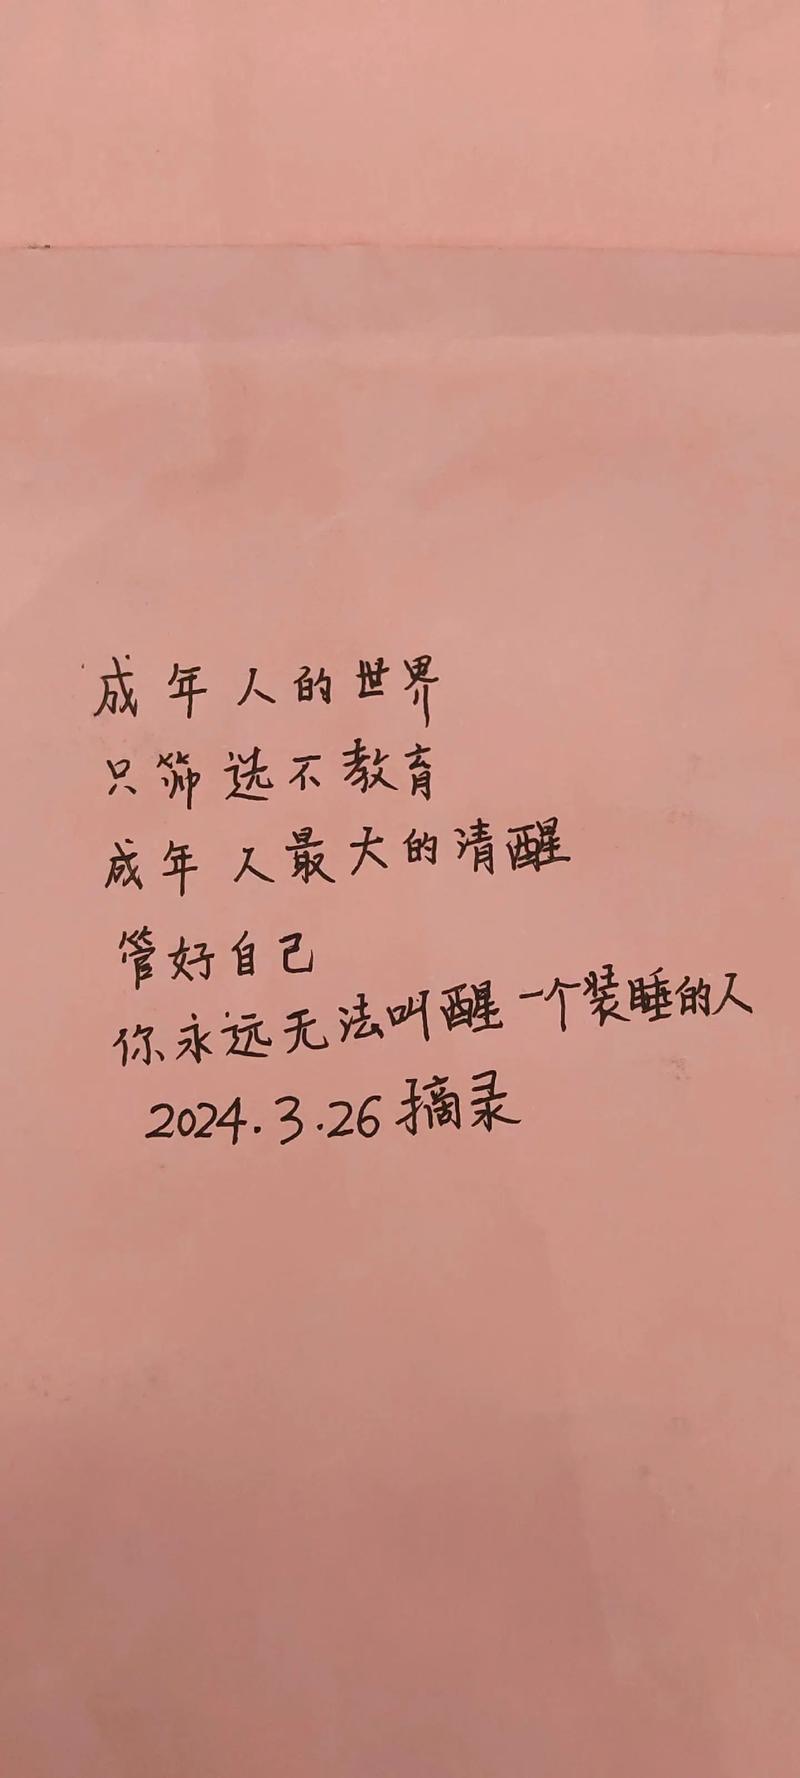 成年人的世界
只筛选不教育
成年人最大的清醒
管好自己
你永远无法叫醒一个装睡的人
2024.3.26摘录